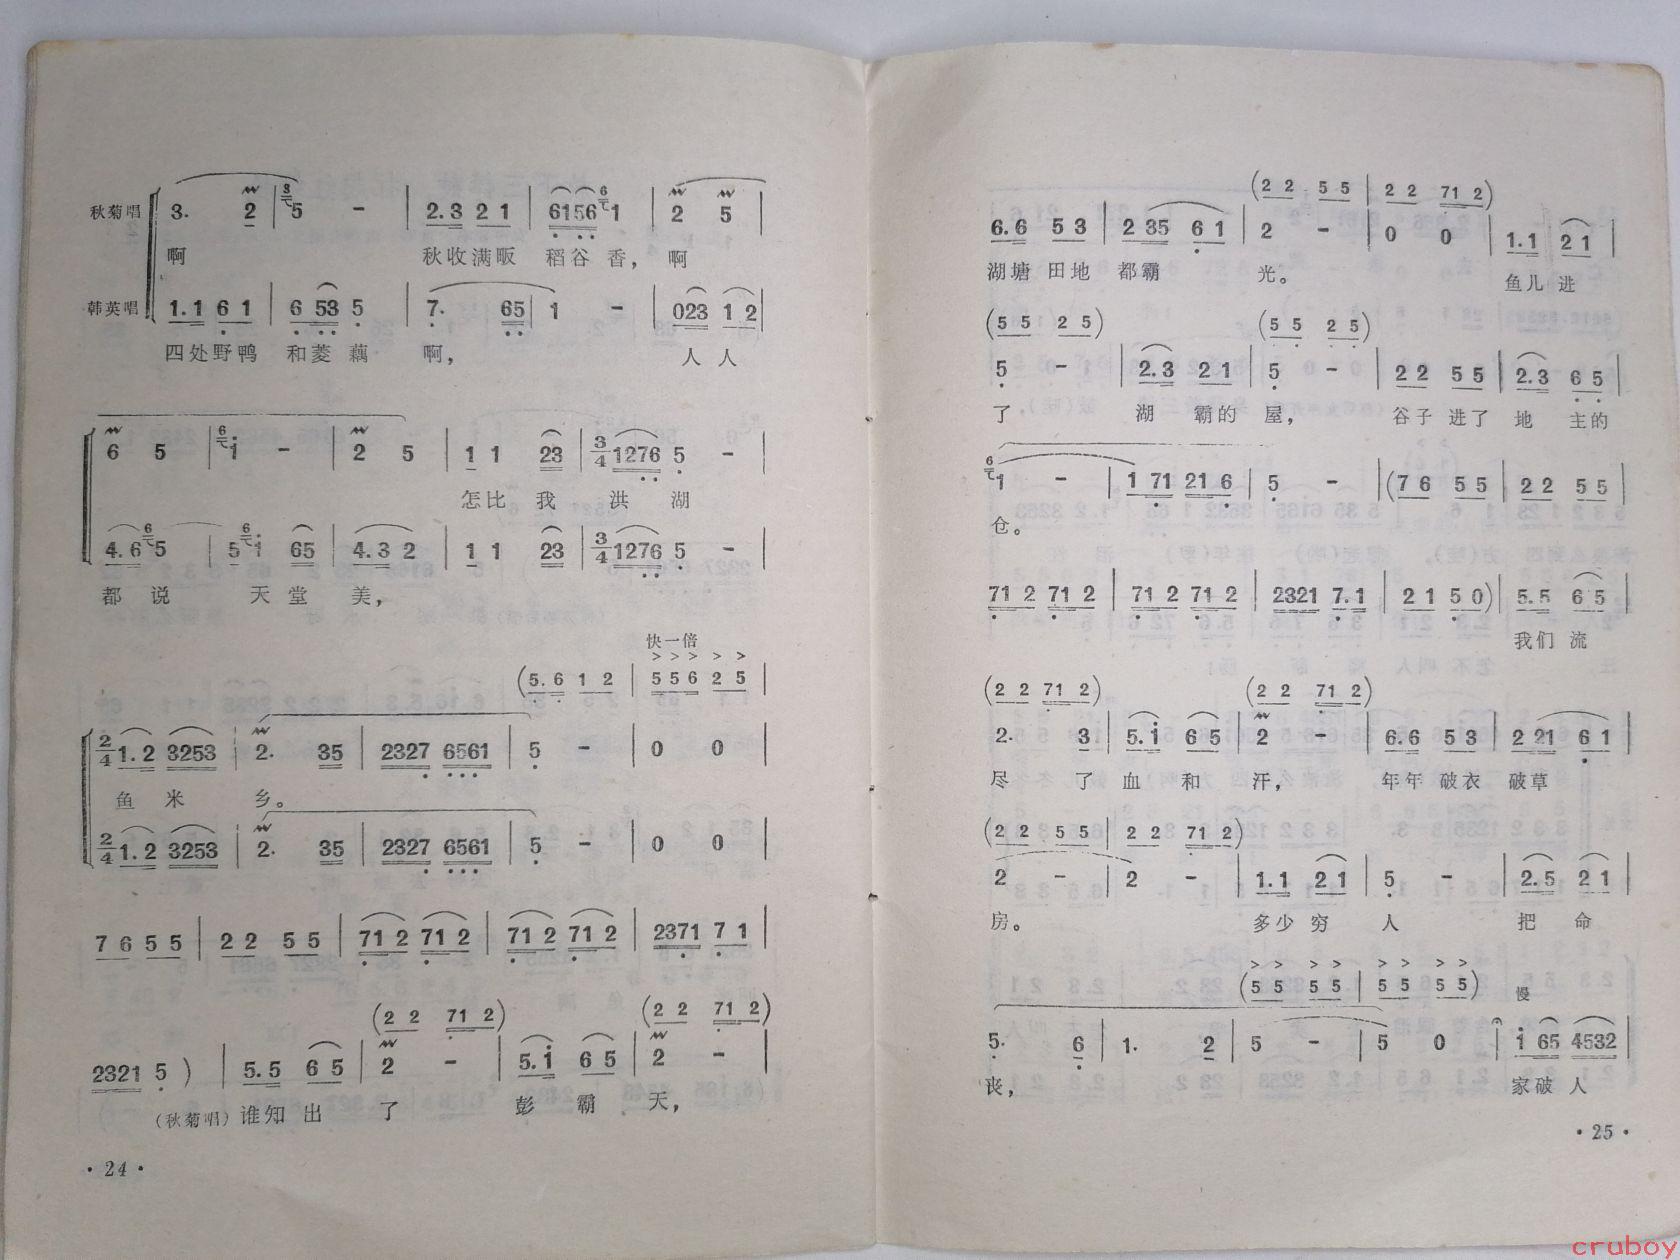 秋菊唱 3. 2 | 5 - | 2.3 2 1 | 6156 1 | 2 5 |
啊 秋收满畈 稻谷 香， 啊
韩英唱 1.1 6 1 | 6 53 5 | 7. 65 | 1 - | 023 1 2 |
四处野鸭 和菱 藕 啊， 人 人
6 5 | 1 - | 2 5 | 1 1 23 | 3/4 1276 5 - |
怎比 我 洪 湖
4.6 5 | 5 1 65 | 4.3 2 | 1 1 23 | 3/4 1276 5 - |
都 说 天 堂 美，
快一倍
(5.6 1 2 | 5 5 6 2 5 |
2/4 1.2 3253 | 2. 35 | 2327 6561 | 5 - | 0 0 |
鱼 米 乡。
2/4 1.2 3253 | 2. 35 | 2327 6561 | 5 - | 0 0 |
7 6 5 5 | 2 2 5 5 | 71 2 71 2 | 71 2 71 2 | 2371 7 1 |
(2 2 71 2) (2 2 71 2)
2321 5 ) | 5.5 6 5 | 2 - | 5.i 6 5 | 2 - |
（秋菊唱）谁知 出 了 彭 霸 天，
· 24 ·
(2 2 5 5 | 2 2 71 2)
6.6 5 3 | 2 35 6 1 | 2 - | 0 0 | 1.1 2 1 |
湖塘 田地 都霸 光。 鱼儿 进
(5 5 2 5) (5 5 2 5)
5 - | 2.3 2 1 | 5 - | 2 2 5 5 | 2.3 6 5 |
了 湖 霸的 屋， 谷子 进了 地 主的
1 - | 1 71 21 6 | 5 - | (7 6 5 5 | 2 2 5 5 |
仓。
71 2 71 2 | 71 2 71 2 | 2321 7.1 | 2 1 5 0) | 5.5 6 5 |
我们 流
(2 2 71 2) (2 2 71 2)
2. 3 | 5.i 6 5 | 2 - | 6.6 5 3 | 2 21 6 1 |
尽 了 血 和 汗， 年年 破衣 破草
(2 2 5 5 | 2 2 71 2)
2 - | 2 - | 1.1 2 1 | 5 - | 2.5 2 1 |
房。 多少 穷 人 把 命
(5 5 5 5 | 5 5 5 5) 慢
5. 6 | 1. 2 | 5 - | 5 0 | i 65 4532 |
丧， 家破 人
· 25 ·
cruboy